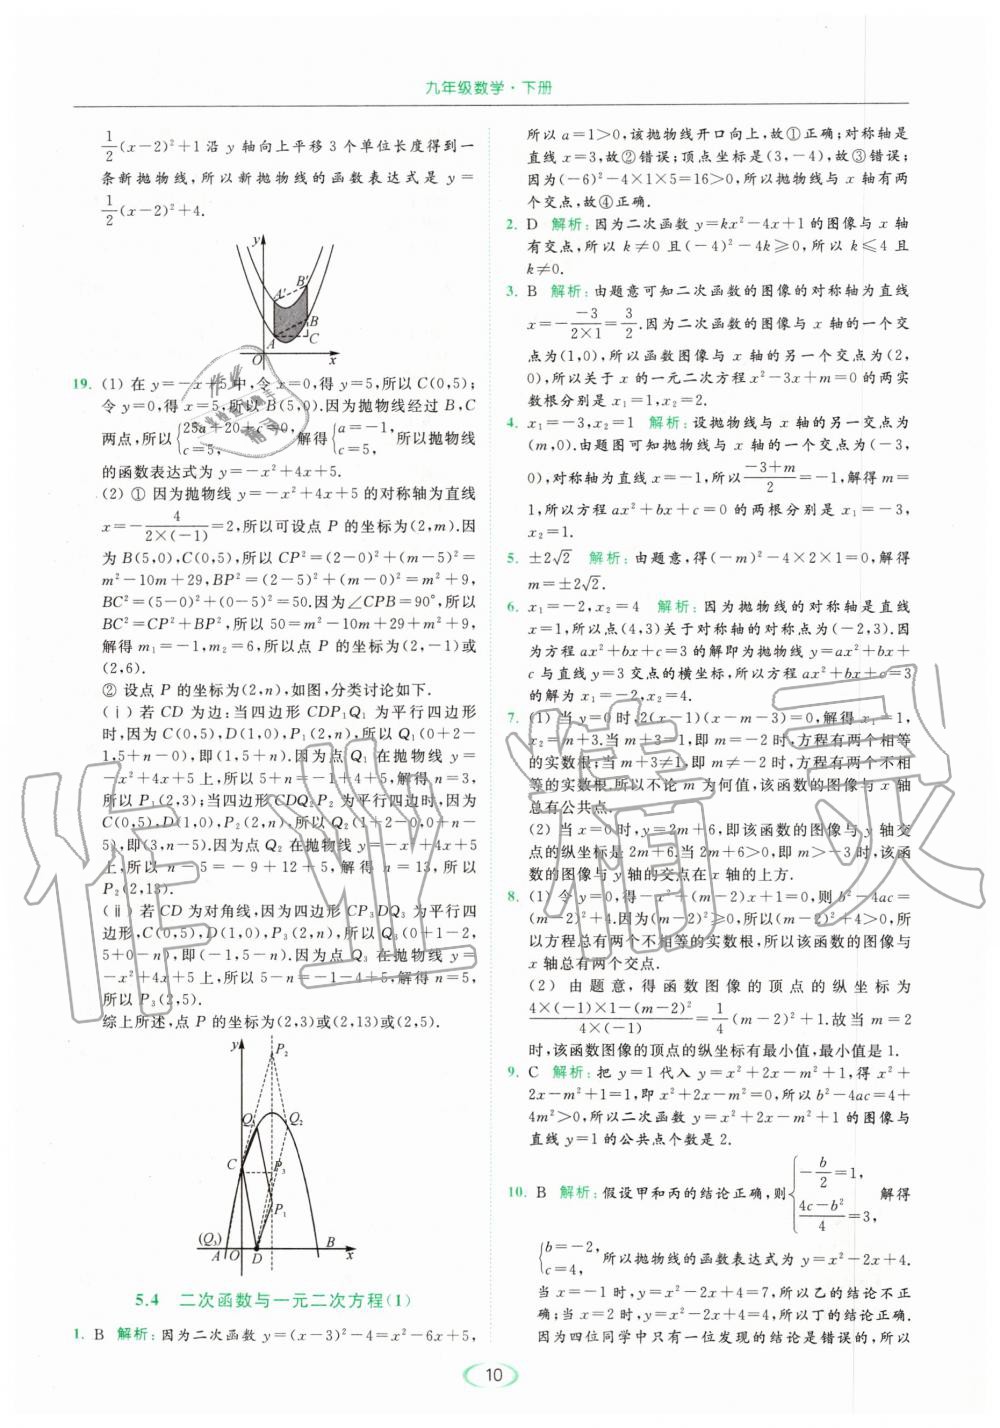 九年级数学·下册
1/2(x-2)²+1沿 y 轴向上平移3个单位长度得到一
条新抛物线,所以新抛物线的函数表达式是 y=
1/2(x-2)²+4.
y
A′
B′
B
A
C
O
x
19. (1) 在 y=-x+5中,令 x=0,得 y=5,所以 C(0,5);
令 y=0,得 x=5,所以 B(5,0).因为抛物线经过 B,C
两点,所以{25a+20+c=0, c=5, 解得{a=-1, c=5, 所以抛物线
的函数表达式为 y=-x²+4x+5.
(2) ① 因为抛物线 y=-x²+4x+5的对称轴为直线
x=-4/(2×(-1))=2,所以可设点 P 的坐标为(2,m).因
为 B(5,0),C(0,5),所以 CP²=(2-0)²+(m-5)²=
m²-10m+29,BP²=(2-5)²+(m-0)²=m²+9,
BC²=(5-0)²+(0-5)²=50.因为∠CPB=90°,所以
BC²=CP²+BP²,所以 50=m²-10m+29+m²+9,
解得 m₁=-1,m₂=6,所以点 P 的坐标为(2,-1)或
(2,6).
② 设点 P 的坐标为(2,n),如图,分类讨论如下.
(ⅰ) 若 CD 为边:当四边形 CDP₁Q₁ 为平行四边形
时,因为 C(0,5),D(1,0),P₁(2,n),所以 Q₁(0+2-
1,5+n-0),即(1,5+n).因为点 Q₁ 在抛物线 y=
-x²+4x+5上,所以 5+n=-1+4+5,解得 n=3,
所以 P₁(2,3);当四边形 CDQ₂P₂ 为平行四边时,因为
C(0,5),D(1,0),P₂(2,n),所以 Q₂(1+2-0,0+n-
5),即(3,n-5).因为点 Q₂ 在抛物线 y=-x²+4x+5
上,所以 n-5=-9+12+5,解得 n=13,所以
P₂(2,13).
(ⅱ) 若 CD 为对角线,因为四边形 CP₃DQ₃ 为平行四
边形,C(0,5),D(1,0),P₃(2,n),所以 Q₃(0+1-2,
5+0-n),即(-1,5-n).因为点 Q₃ 在抛物线 y=
-x²+4x+5上,所以 5-n=-1-4+5,解得 n=5,
所以 P₃(2,5).
综上所述,点 P 的坐标为(2,3)或(2,13)或(2,5).
y
P₂
Q₁
Q₂
C
P₃
P₁
(Q₃)
A
O
D
B
x
5.4 二次函数与一元二次方程(1)
1. B 解析:因为二次函数 y=(x-3)²-4=x²-6x+5,
所以 a=1>0,该抛物线开口向上,故①正确;对称轴是
直线 x=3,故②错误;顶点坐标是(3,-4),故③错误;
因为(-6)²-4×1×5=16>0,所以抛物线与 x 轴有两
个交点,故④正确.
2. D 解析:因为二次函数 y=kx²-4x+1的图像与 x 轴
有交点,所以 k≠0 且(-4)²-4k≥0,所以 k≤4 且
k≠0.
3. B 解析:由题意可知二次函数的图像的对称轴为直线
x=-(-3)/(2×1)=3/2.因为二次函数的图像与 x 轴的一个交
点为(1,0),所以该图像与 x 轴的另一个交点为(2,
0),所以关于 x 的一元二次方程 x²-3x+m=0 的两实
数根分别是 x₁=1,x₂=2.
4. x₁=-3,x₂=1 解析:设抛物线与 x 轴的另一交点为
(m,0).由题图可知抛物线与 x 轴的一个交点为(-3,
0),对称轴为直线 x=-1,所以(-3+m)/2=-1,解得 m=
1,所以方程 ax²+bx+c=0 的两根分别是 x₁=-3,
x₂=1.
5. ±2√2 解析:由题意,得(-m)²-4×2×1=0,解得
m=±2√2.
6. x₁=-2,x₂=4 解析:因为抛物线的对称轴是直线
x=1,所以点(4,3)关于对称轴的对称点为(-2,3).因
为方程 ax²+bx+c=3的解即为抛物线 y=ax²+bx+
c 与直线 y=3交点的横坐标,所以方程 ax²+bx+c=3
的解为 x₁=-2,x₂=4.
7. (1) 当 y=0时,2(x-1)(x-m-3)=0,解得 x₁=1,
x₂=m+3.当 m+3=1,即 m=-2时,方程有两个相等
的实数根;当 m+3≠1,即 m≠-2时,方程有两个不相
等的实数根.所以不论 m 为何值,该函数的图像与 x 轴
总有公共点.
(2) 当 x=0时,y=2m+6,即该函数的图像与 y 轴交
点的纵坐标是 2m+6.当 2m+6>0,即 m>-3时,该函
数的图像与 y 轴的交点在 x 轴的上方.
8. (1) 令 y=0,得-x²+(m-2)x+1=0,则 b²-4ac=
(m-2)²+4.因为(m-2)²≥0,所以(m-2)²+4>0,所
以方程总有两个不相等的实数根,所以该函数的图像与
x 轴总有两个交点.
(2) 由题意,得函数图像的顶点的纵坐标为
(4×(-1)×1-(m-2)²)/(4×(-1))=1/4(m-2)²+1.故当 m=2
时,该函数图像的顶点的纵坐标有最小值,最小值是 1.
9. C 解析:把 y=1代入 y=x²+2x-m²+1,得 x²+
2x-m²+1=1,即 x²+2x-m²=0,所以 b²-4ac=4+
4m²>0,所以二次函数 y=x²+2x-m²+1的图像与
直线 y=1的公共点个数是 2.
10. B 解析:假设甲和丙的结论正确,则{-b/2=1, (4c-b²)/4=3, 解得
{b=-2, c=4, 所以抛物线的函数表达式为 y=x²-2x+4.
当 x=-1时,y=x²-2x+4=7,所以乙的结论不正
确;当 x=2时,y=x²-2x+4=4,所以丁的结论正确.
因为四位同学中只有一位发现的结论是错误的,所以
10
作业精灵